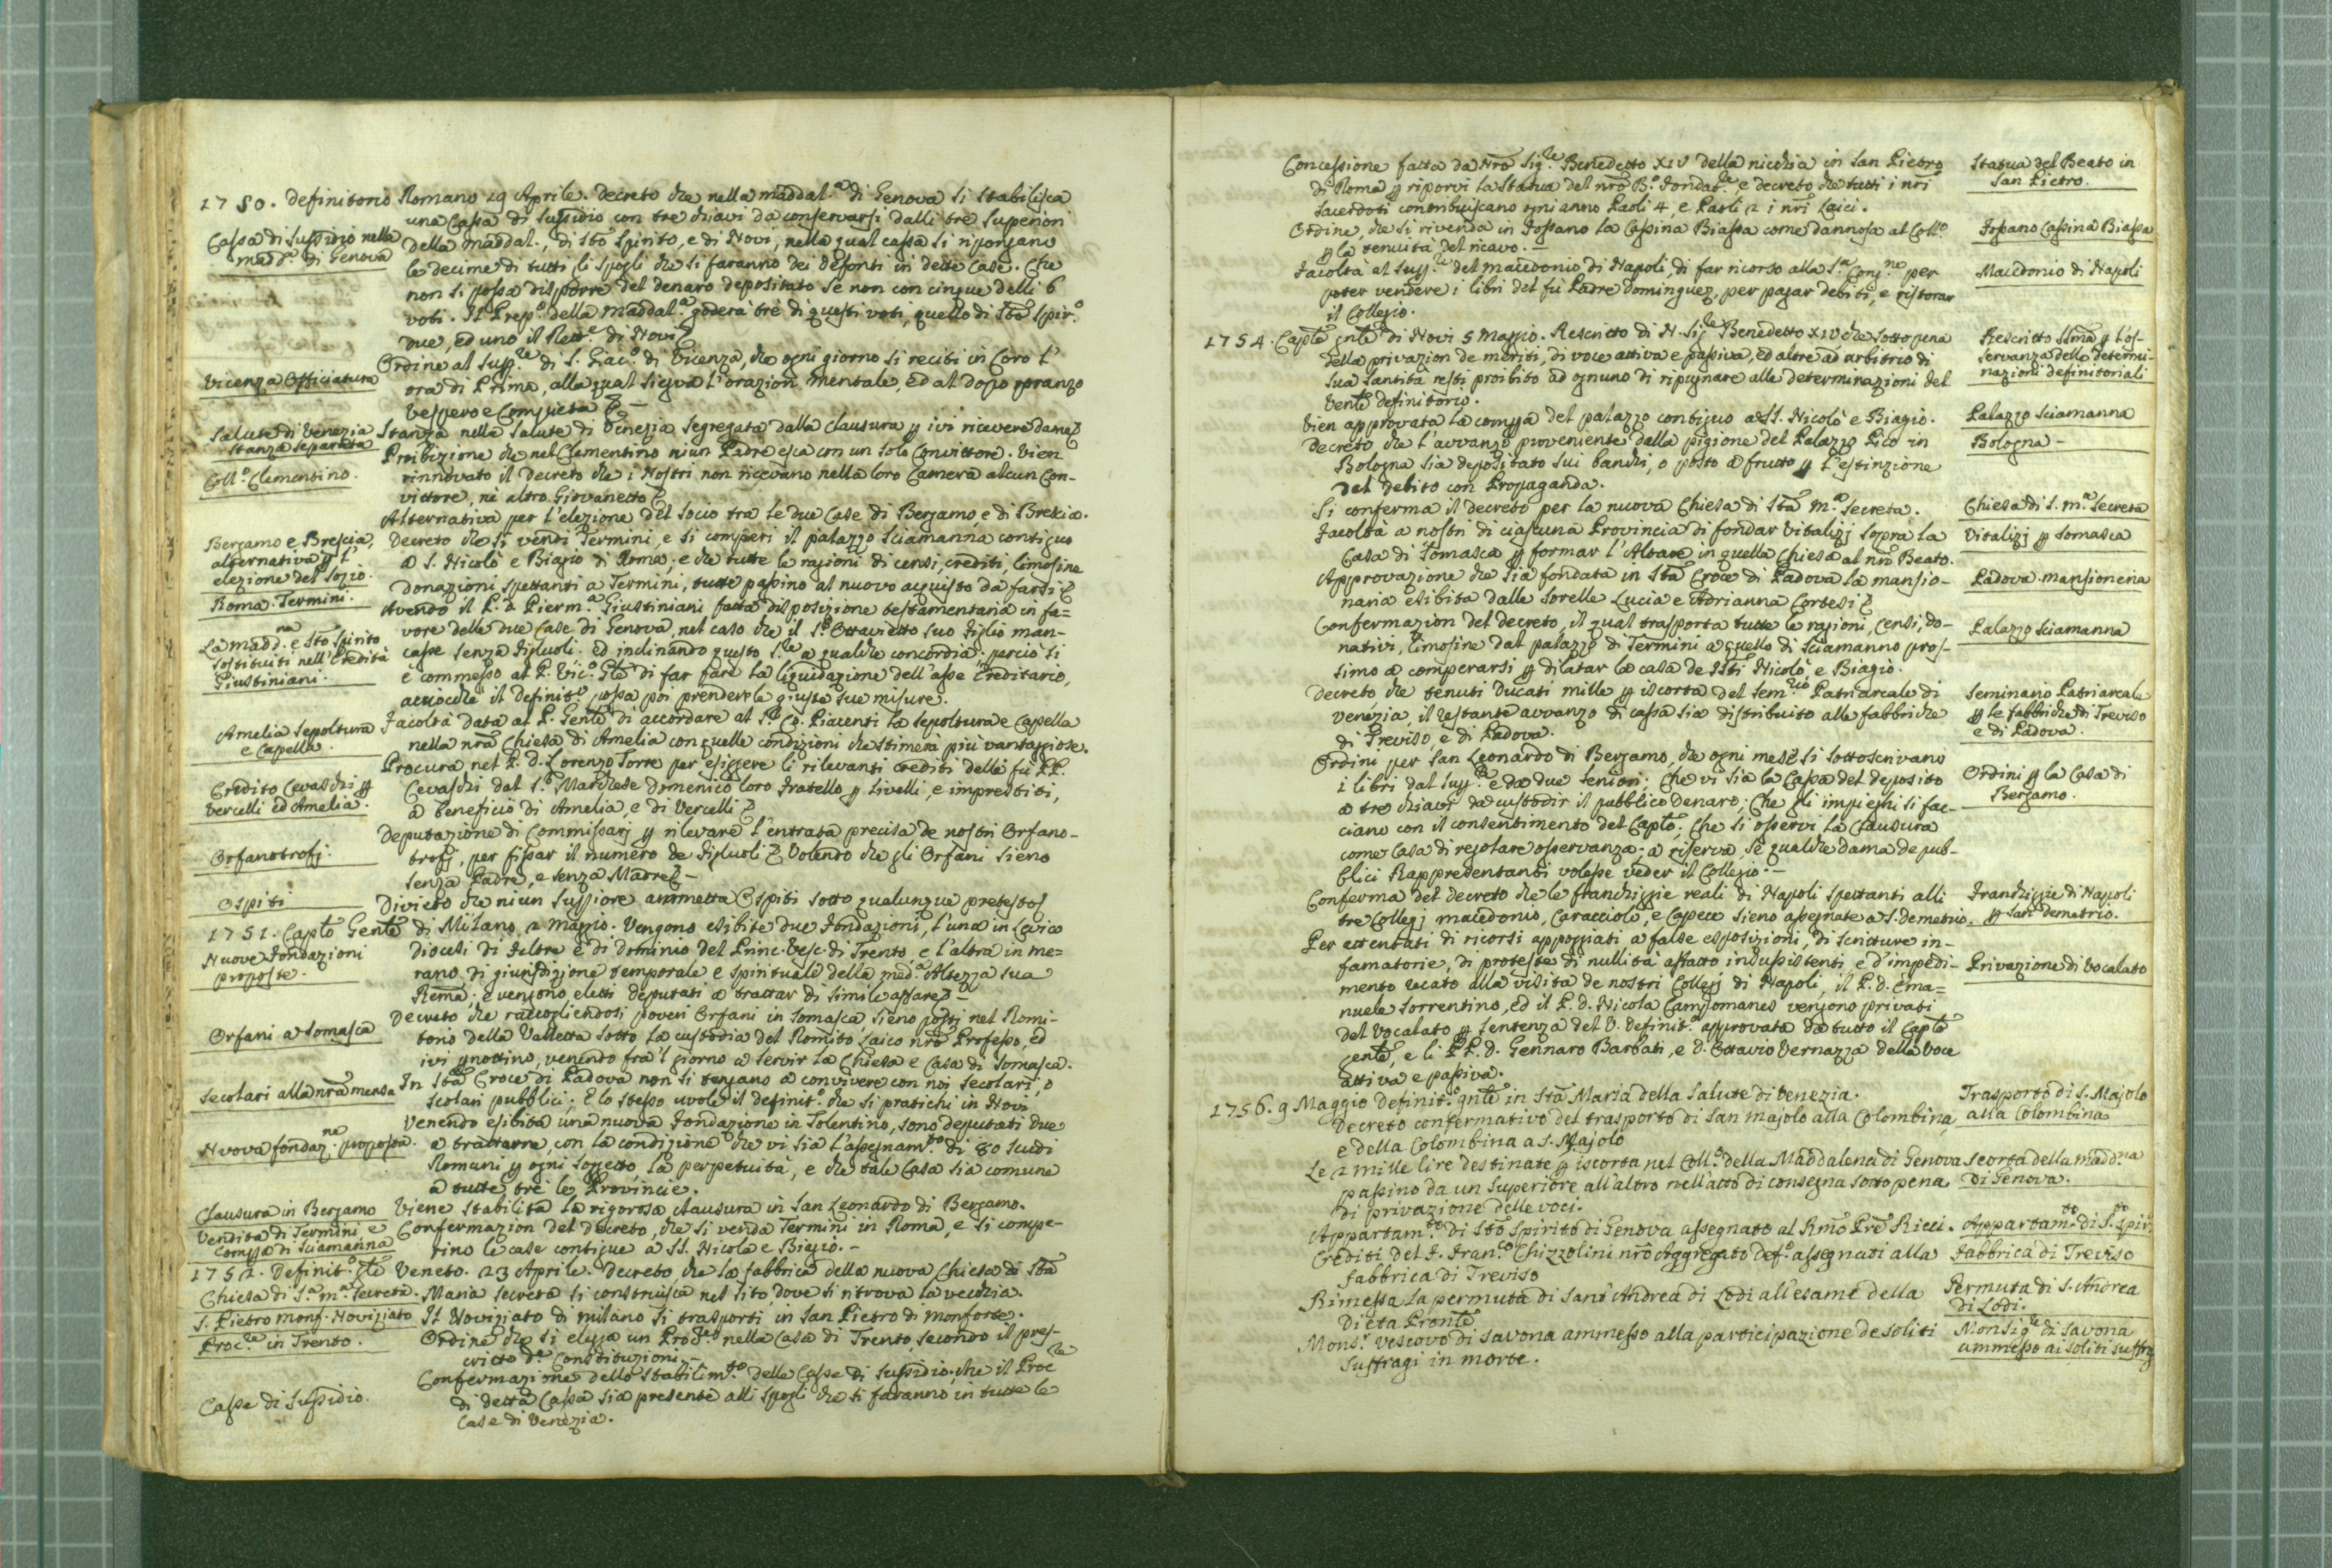 1750. Definitorio Romano 29 Aprile. Decreto che nella maddal.a di Genova si stabilisca
una Cassa di sussidio con tre chiavi da conservarsi dalli tre superiori
Cassa di sussidio nella
madd.a di Genova
della Maddal., di Sto Spirito, e di Novi, nella qual cassa si ripongano
le decime di tutti li spogli che si faranno dei defonti in dette Case. Che
non si possa disporre del denaro depositato se non con cinque delli 6
voti. Il Prep.o della Maddal.a goderà tre di questi voti, quello di Sto Spir.o
due, ed uno il Rett.e di Novi
Vicenza Officiatura
Ordine al Sup.re di S. Giac.o di Vicenza, che ogni giorno si reciti in Coro l'
ora di Prima, alla qual siegua l'orazion mentale, ed al dopo pranzo
Vespero e Compieta
Salute di Venezia
stanza separata
Stanza nella Salute di Venezia segregata dalla clausura p ivi ricevere dame
Coll.o Clementino.
Proibizione che nel Clementino niun Padre esca con un solo Convittore. Vien
rinnovato il Decreto che i Nostri non ricevano nella loro Camera alcun Con-
vittore, nè altro Giovanetto
Bergamo e Brescia,
alternativa p l'
elezione del Sozio.
Alternativa per l'elezione del Socio tra le due Case di Bergamo, e di Brescia.
Roma. Termini.
Decreto che si vendi Termini, e si comperi il palazzo Sciamanna contiguo
a S. Nicolò e Biagio di Roma; e che tutte le ragioni di censi, crediti, limosine
donazioni spettanti a Termini, tutte passino al nuovo acquisto da farsi
La madd.na e Sto Spirito
sostituiti nell'Eredità
Giustiniani.
Avendo il P. D. Pierm.a Giustiniani fatta disposizione testamentaria in fa=
vore delle due Case di Genova, nel caso che il S.r Ottavietto suo figlio man-
casse senza figluoli. Ed inclinando questo S.re a qualche concordia; perciò si
è commesso al P. Vic.o Gle di far fare la liquidazione dell'asse Ereditario,
acciocchè il Definit.o possa poi prendere le giuste sue misure.
Amelia sepoltura
e Capella.
Facoltà data al P. Genle di accordare al S.r Co. Piacenti la sepoltura e Capella
nella nra Chiesa di Amelia con quelle condizioni che stimerà più vantaggiose.
Credito Cevaschi p
Vercelli ed Amelia.
Procura nel P. D. Lorenzo Torre per esiggere li rilevanti crediti delli fù PP.
Cevaschi dal S.r Marchese Domenico loro fratello p livelli, e imprestiti,
a beneficio di Amelia, e di Vercelli
Orfanotrofj.
Deputazione di Commissarj p rilevare l'entrata precisa de nostri Orfano-
trofj, per fissar il numero de figluoli Volendo che gli Orfani sieno
senza Padre, e senza Madre
Ospiti
Divieto che niun Suppiore ammetta Ospiti sotto qualunque pretesto
1751. Caplo Genle di Milano 2 Maggio. Vengono esibite due fondazioni, l'una in Levico
Nuove fondazioni
proposte.
diocesi di Feltre e di dominio del Princ. Vesc. di Trento, e l'altra in me=
rano di giurisdizione temporale e spirituale della med.a Altezza sua
Rema; e vengono eletti deputati a trattar di simile affare
Orfani a Somasca
Decreto che raccogliendosi poveri Orfani in Somasca, sieno posti nel Romi-
torio della Valletta sotto la custodia del Romito laico nro Professo, ed
ivi pnottino, venendo fra'l giorno a servir la Chiesa e Casa di Somasca.
Secolari alla nra mensa
In Sta Croce di Padova non si tengano a convivere con noi secolari, o
scolari pubblici; E lo stesso vuole il definit.o che si pratichi in Novi
Nuova fondaz.ne proposta.
Venendo esibita una nuova fondazione in Tolentino, sono deputati due
a trattarne, con la condizione che vi sia l'assegnam.to di 80 scudi
Romani p ogni soggetto, la perpetuità, e che tale Casa sia comune
a tutte tre le Provincie.
Clausura in Bergamo
Viene stabilita la rigorosa clausura in San Leonardo di Bergamo.
Vendita di Termini, e
compra di Sciamanna
Confermazion del decreto, che si venda Termini in Roma, e si compe-
rino le case contigue a SS. Nicola e Biagio.
1752. Definit.o Gle Veneto. 23 Aprile. Decreto che la fabbrica della nuova Chiesa di Sta
Chiesa di S.a M.a Secreta.
Maria Secreta si construisca nel sito, dove si ritrova la vecchia.
S. Pietro Monf. Novizziato
Il Novizziato di milano si trasporti in San Pietro di Monforte.
Proc.re in Trento.
Ordine che si elegga un Proc.re nella Casa di Trento, secondo il pres-
critto d.e Constituzioni.
Casse di sussidio.
Confermazione dello stabilim.to delle Casse di sussidio, che il Proc.re
di detta Cassa sia presente alli spogli che si faranno in tutte le
Case di Venezia.
Concessione fatta da Nro Sig.re Benedetto XIV della nicchia in San Pietro
di Roma p riporvi la statua del nro B.o Fondat.re, e decreto che tutti i nri
sacerdoti contribuiscano ogni anno Paoli 4, e Paoli 2 i nri Laici.
Statua del Beato in
San Pietro.
Ordine, che si rivenda in Fossano la Cassina Biassa come dannosa al Coll.o
p la tenuità del ricavo.
Fossano Cassina Biassa
Facoltà al Sup.re del macedonio di Napoli, di far ricorso alla S.a Cong.ne per
poter vendere i libri del fù Padre Dominguez, per pagar debiti, e ristorar
il Collegio.
Macedonio di Napoli
1754. Caplo gnle di Novi 5 Maggio. Rescritto di N. Sig.re Benedetto XIV che sotto pena
della privazion de meriti, di voce attiva e passiva, ed altre ad arbitrio di
sua Santità resti proibito ad ognuno di ripugnare alle determinazioni del
Vente definitorio.
Rescritto SSmo p l'os-
servanza delle determi-
nazioni definitoriali
Vien approvata la compra del palazzo contiguo a SS. Nicolò e Biagio.
Palazzo Sciamanna
Decreto che l'avvanzo proveniente dalla pigione del Palazzo Pico in
Bologna sia depositato sui banchi, o posto a frutto p l'estinzione
del debito con Propaganda.
Bologna -
Si conferma il decreto per la nuova Chiesa di Sta M.a Secreta.
Chiesa di S. M.a Secreta
Facoltà a nostri di ciascuna Provincia di fondar Vitalizj sopra la
Casa di Somasca p formar l'Altare in quella Chiesa al nro Beato.
Vitalizj p Somasca
Approvazione che sia fondata in Sta Croce di Padova la mansio-
naria esibita dalle sorelle Lucia e Adrianna Cortesi
Padova. mansioneria
Confermazion del decreto, il qual trasporta tutte le ragioni, Censi, do-
nativi, limosine dal palazzo di Termini a quello di Sciamanno pros-
simo a comperarsi p dilatar la casa de SSti Nicolò, e Biagio.
Palazzo Sciamanna
Decreto, che tenuti Ducati mille p iscorta del Sem.rio Patriarcale di
Venezia, il restante avvanzo di cassa sia distribuito alle fabbriche
di Treviso, e di Padova.
Seminario Patriarcale
p le fabbriche di Treviso
e di Padova.
Ordini per San Leonardo di Bergamo, che ogni mese si sottoscrivano
i libri dal Sup.re e da due seniori; Che vi sia la Cassa del deposito
a tre chiavi da custodir il pubblico denaro; Che gli impieghi si fac-
ciano con il consentimento del Caplo; Che si osservi la Clausura
come Casa di regolare osservanza; a riserva, se qualche dama de pub-
blici Rappredentanti volesse veder il Collegio.
Ordini p la Casa di
Bergamo.
Conferma del decreto che le franchiggie reali di Napoli spettanti alli
tre Collegj macedonio, Caracciolo, e Capece sieno assegnate a S. Demetrio.
Franchiggie di Napoli
p San Demetrio.
Per attentati di ricorsi appoggiati a false esposizioni, di scritture in-
famatorie, di proteste di nullità affatto insussistenti e d'impedi-
mento recato alla visita de nostri Collegj di Napoli, il P. D. Ema=
nuele Sorrentino, ed il P. D. Nicola Campomanes vengono privati
del Vocalato p sentenza del V. Definit.o approvata da tutto il Caplo
Genle, e li PP. D. Gennaro Barbati, e D. Ottavio Vernazza della voce
attiva e passiva.
Privazione di Vocalato
1756. 9 Maggio Definit.o gnle in Sta Maria della Salute di Venezia.
Decreto confermativo del trasporto di San Majolo alla Colombina,
e della Colombina a S. Majolo
Trasporto di S. Majolo
alla Colombina
Le 2 mille lire destinate p iscorta nel Coll.o della Maddalena di Genova
passino da un Superiore all'altro nell'atto di consegna sotto pena
di privazione delle voci.
scorta della madd.na
di Genova.
Appartam.to di Sto Spirito di Genova assegnato al Rmo Pre Ricci.
Appartam.to di S.to Spir.
Crediti del P. Fran.co Chizzolini nro Aggregato def.o assegnati alla
fabbrica di Treviso
Fabbrica di Treviso
Rimessa la permuta di Sant'Andrea di Lodi all'esame della
Dieta Prontle
Permuta di S. Andrea
di Lodi.
Mons.r Vescovo di Savona ammesso alla participazione de soliti
suffragi in morte.
Monsig.re di Savona
ammesso ai soliti suffrg